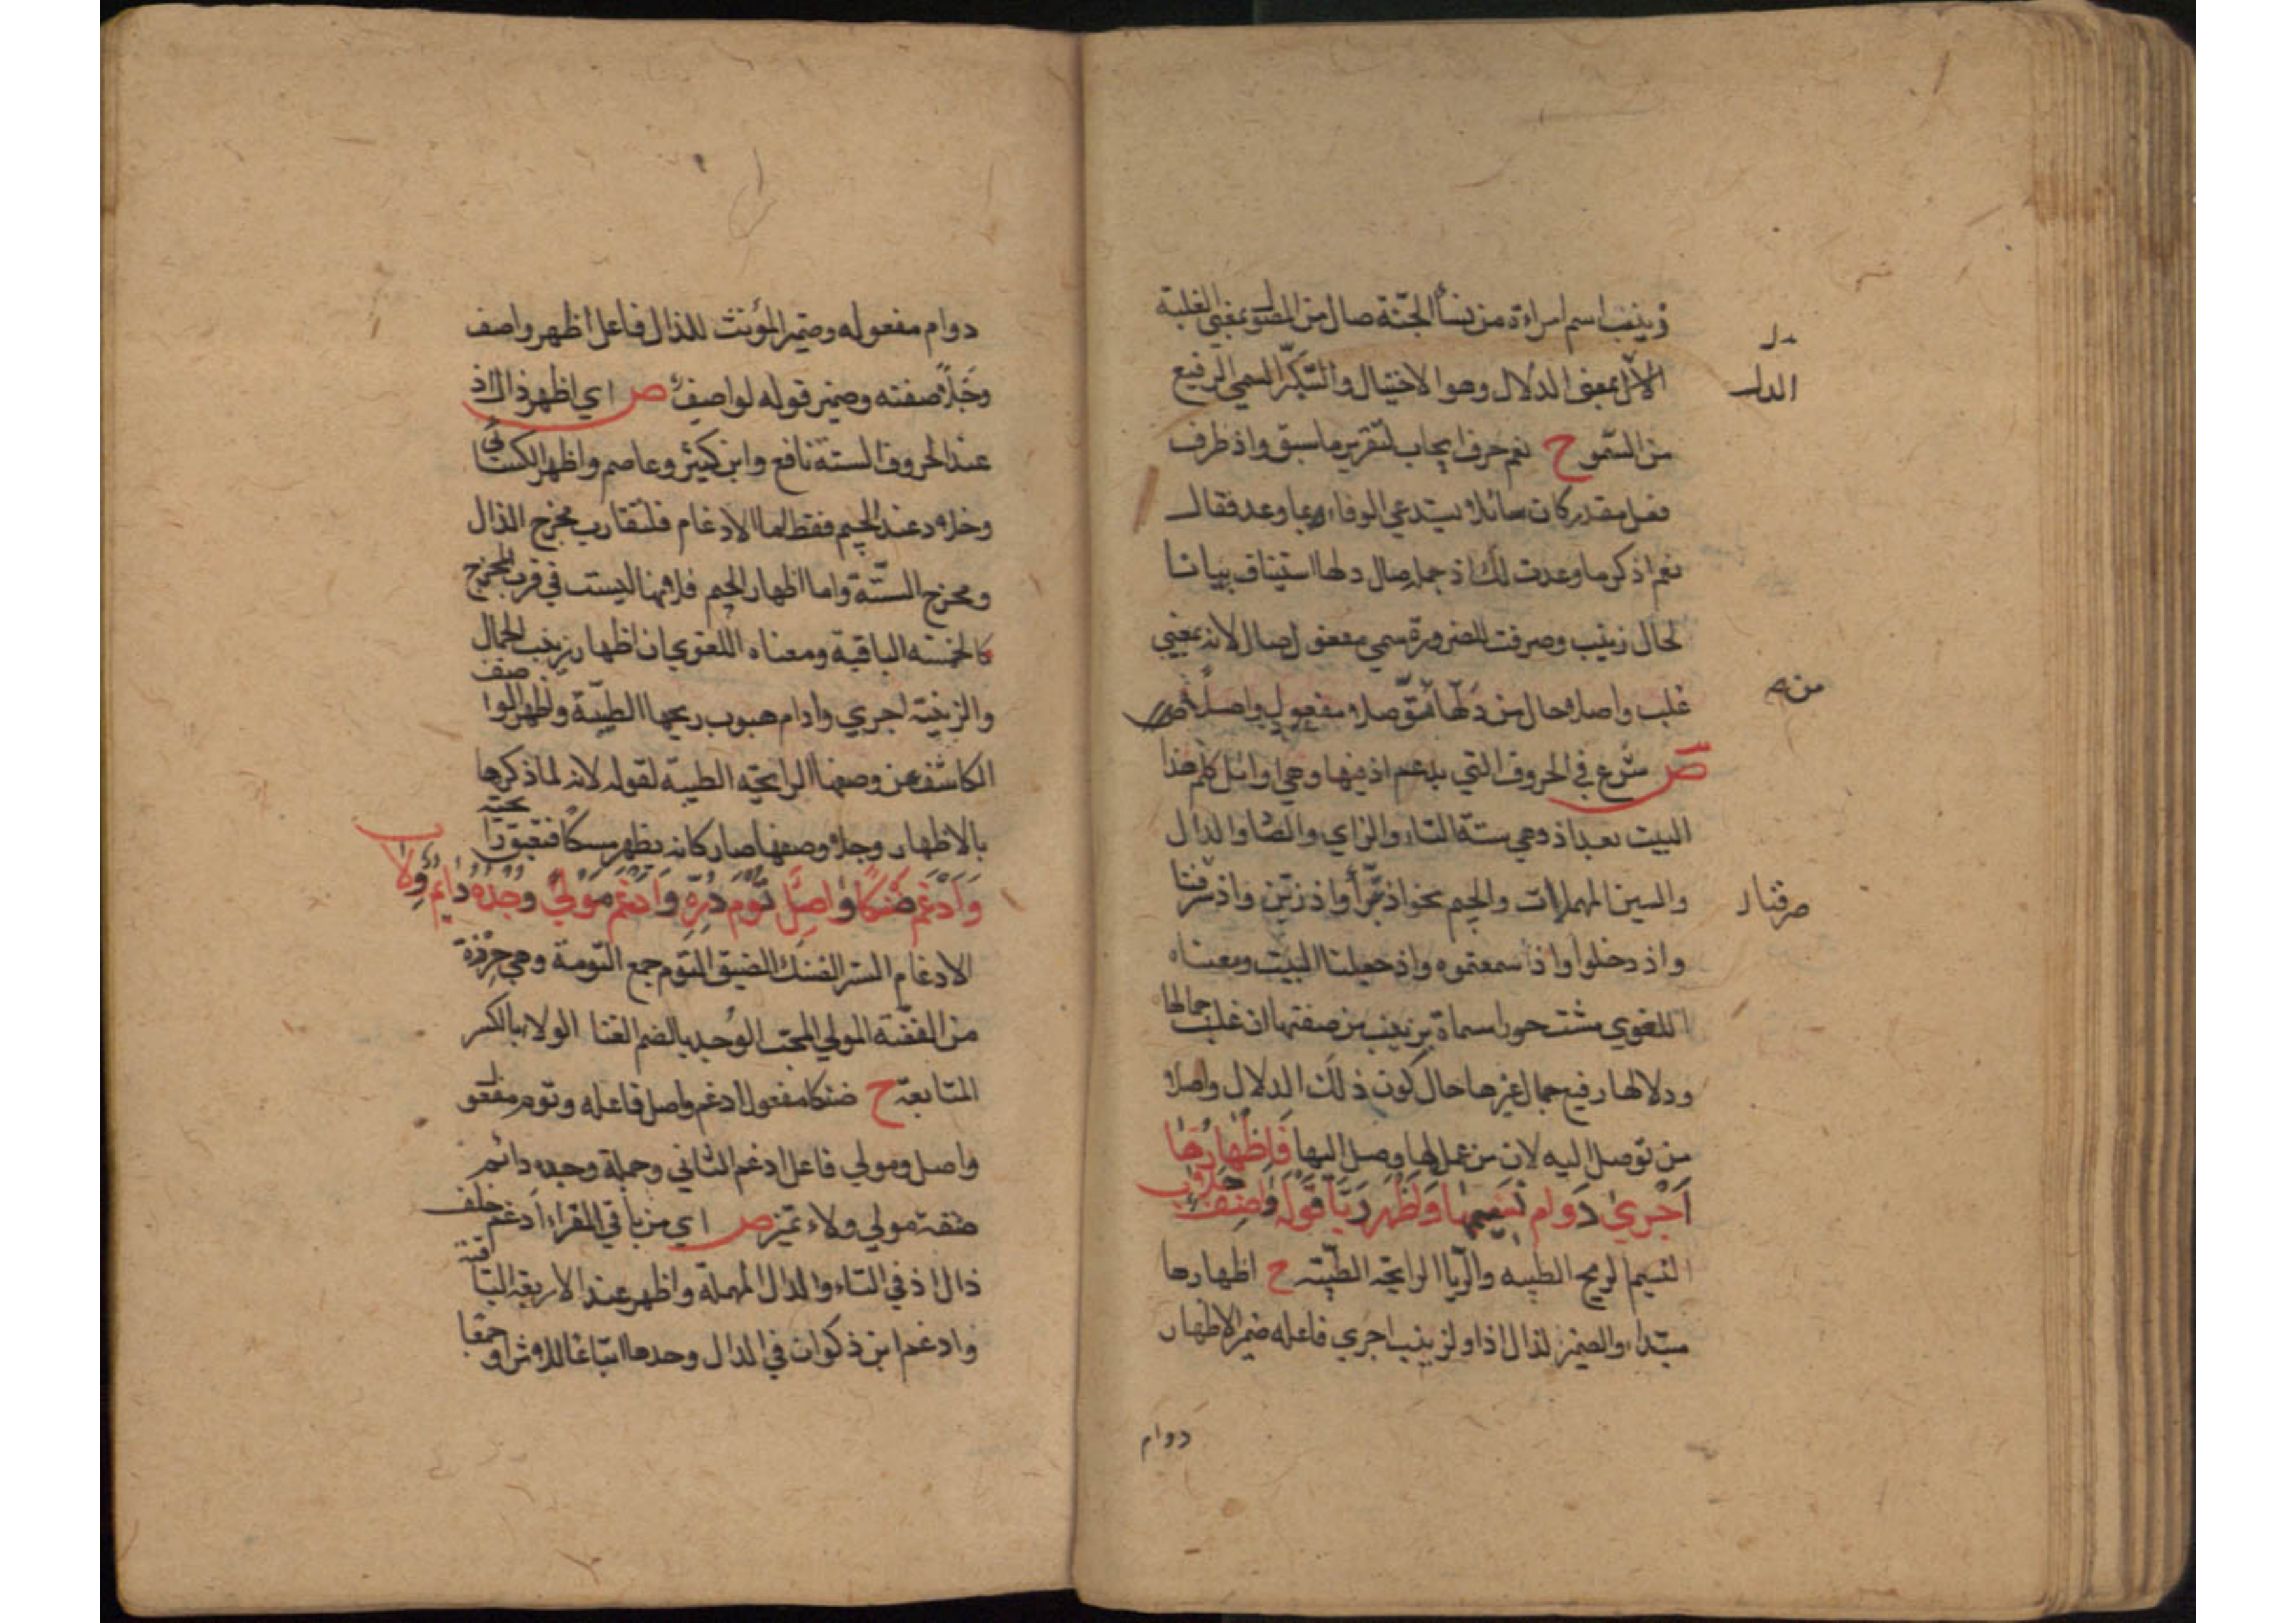 زينب اسم امراءة من نسأ الجنّة صال من الصّو بمعني الغلبة
الدّل بمعنى الدلال وهو الاختيال والتكبّر السمي الرفيع
من السّمو ح نعم حرف ايجاب لتقرير ما سبق واذ ظرف
فعل مقدر كان سائلا يستدعي الوفاء بما وعد فقال
نعم اذكر ما وعدت لك اذ جملة صال دلها استيناف بيانا
لحال زينب وصرفت للضرورة سمي مفعول صال لانه بمعني
غلب واصلا حال من دلّها من توصلا مفعول واصلا
ص شرع في الحروف التي يدغم اذ فيها وهي اوائل كلم هذا
البيت بعد اذ وهي ستة التاء والزاي والصاد والدال
والسين المهملات والجيم نحو اذ تبرّأ واذ زيّن واذ صرفنا
واذ دخلوا واذا سمعتموه واذ جعلنا البيت ومعناه
اللغوي مشت حورا مسماة بزينب من صفتها ان غلب جمالها
ودلالها رفيع جمال غيرها حال كون ذلك الدلال واصلا
من توصل اليه لان من عمل لها وصل اليها فَاِظْهَارُهَا
اَجْرِيٰ دَوَام نَسِيمِهَا وَاَظْهَر رَيَّا قَوْلِهِ وَاصِفٌ جَلَا
النسيم الريح الطيبه والريّا الرايحة الطيّبة ح اظهارها
مبتداء والضمير لذال اذ او لزينب اجري فاعله ضمير الاظهار
دل
الدلـ
من صـ
صرفنا
دوام
دوام مفعوله وضمير المؤنث للذال فاعل اظهر واصف
وجَلاً صفته وضمير قوله لواصف ص اي اظهر ذال اذ
عند الحروف الستة نافع وابن كثير وعاصم واظهر الكسائي
وخلاد عند الجيم فقط اما الادغام فلتقارب مخرج الذال
ومخرج الستّة واما اظهار الجيم فلانها ليست في قرب المخرج
كالخمسه الباقية ومعناه اللغوي ان اظهار زينب الجمال
والزينة اجري وادام هبوب ريحها الطيّبة واظهر الواصف
الكاشف عن وصفها الرايحة الطيبة لقوله لانه لما ذكرها
بالاظهار وجلا وصفها صار كانه يظهر مسكا فتفوح رايحته
وَاَدْغَم ضَنْكًا وٰاصِلٌ تُوْمَ دُرِّهِ وَاَدْغَم مَوْليً وُجْدُهُ دٰايِمٌ وِلَا
الادغام الستر الضنك الضيق التوم جمع التومة وهي خرزة
من الفضّة المولي المحب الوُجد بالضم الغنا الولاء بالكسر
المتابعة ح ضنكا مفعول ادغم واصل فاعله وتوم مفعول
واصل ومولي فاعل ادغم الثاني وجملة وجده دائم
صفة مولي ولاء تميز ص اي من باقي القراء ادغم خلف
ذال اذ في التاء والدال المهملة واظهر عند الاربعة الباقية
وادغم ابن ذكوان في الدال وحدها اتباعا للاثر او جمعا